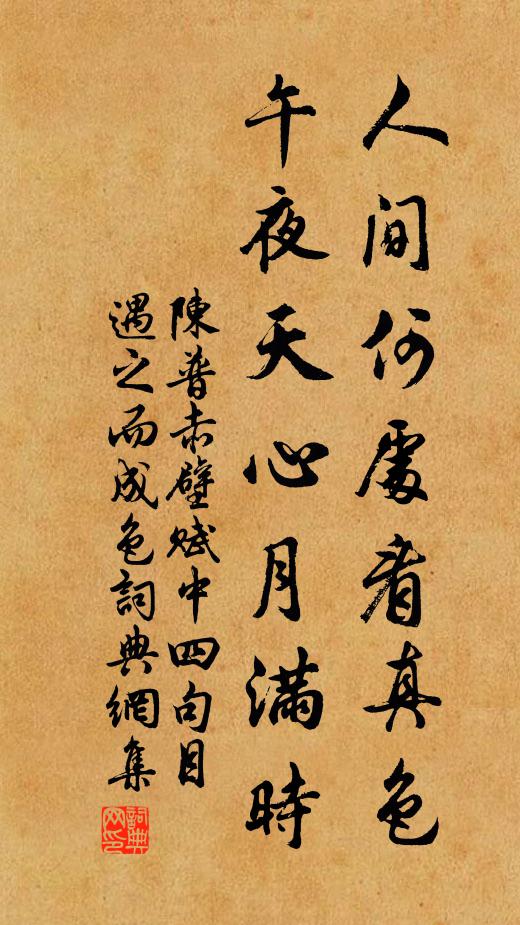 人間何處看真色
午夜天心月滿時
陳普赤壁賦中四句目
遇之而成色詞典網集
詞典网印